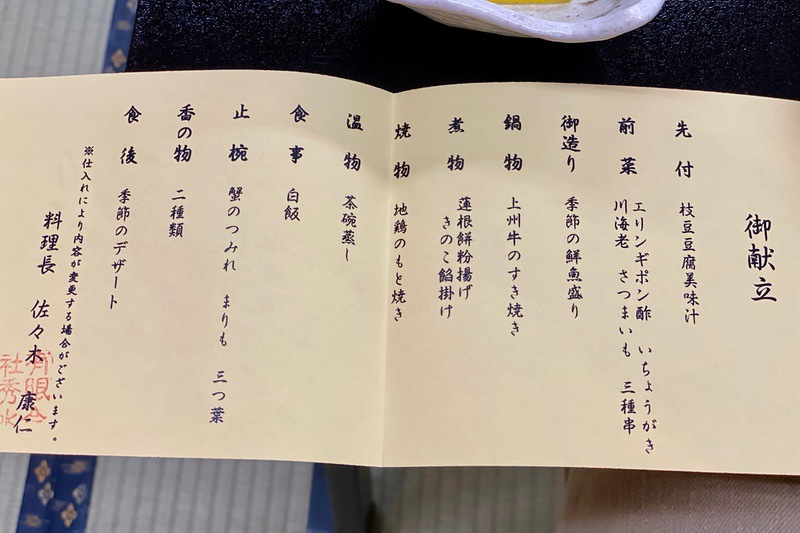 御献立
先付 枝豆豆腐美味汁
前菜 エリンギポン酢 いちょうがき
川海老 さつまいも 三種串
御造り 季節の鮮魚盛り
鍋物 上州牛のすき焼き
煮物 蓮根餅粉揚げ
きのこ餡掛け
焼物 地鶏のもと焼き
温物 茶碗蒸し
食事 白飯
止椀 蟹のつみれ まりも 三つ葉
香の物 二種類
食後 季節のデザート
※仕入れにより内容が変更する場合がございます。
料理長 佐々木 康仁